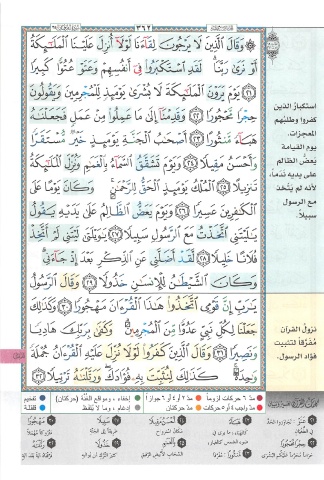 ٣٦٢
۞ وَقَالَ ٱلَّذِينَ لَا يَرْجُونَ لِقَآءَنَا لَوْلَآ أُنزِلَ عَلَيْنَا ٱلْمَلَٰٓئِكَةُ
أَوْ نَرَىٰ رَبَّنَا ۗ لَقَدِ ٱسْتَكْبَرُوا۟ فِىٓ أَنفُسِهِمْ وَعَتَوْ عُتُوًّا كَبِيرًا
٢١ يَوْمَ يَرَوْنَ ٱلْمَلَٰٓئِكَةَ لَا بُشْرَىٰ يَوْمَئِذٍ لِّلْمُجْرِمِينَ وَيَقُولُونَ
حِجْرًا مَّحْجُورًا ٢٢ وَقَدِمْنَآ إِلَىٰ مَا عَمِلُوا۟ مِنْ عَمَلٍ فَجَعَلْنَٰهُ
هَبَآءً مَّنثُورًا ٢٣ أَصْحَٰبُ ٱلْجَنَّةِ يَوْمَئِذٍ خَيْرٌ مُّسْتَقَرًّا
وَأَحْسَنُ مَقِيلًا ٢٤ وَيَوْمَ تَشَقَّقُ ٱلسَّمَآءُ بِٱلْغَمَٰمِ وَنُزِّلَ ٱلْمَلَٰٓئِكَةُ
تَنزِيلًا ٢٥ ٱلْمُلْكُ يَوْمَئِذٍ ٱلْحَقُّ لِلرَّحْمَٰنِ ۚ وَكَانَ يَوْمًا عَلَى
ٱلْكَٰفِرِينَ عَسِيرًا ٢٦ وَيَوْمَ يَعَضُّ ٱلظَّالِمُ عَلَىٰ يَدَيْهِ يَقُولُ
يَٰلَيْتَنِى ٱتَّخَذْتُ مَعَ ٱلرَّسُولِ سَبِيلًا ٢٧ يَٰوَيْلَتَىٰ لَيْتَنِى لَمْ أَتَّخِذْ
فُلَانًا خَلِيلًا ٢٨ لَّقَدْ أَضَلَّنِى عَنِ ٱلذِّكْرِ بَعْدَ إِذْ جَآءَنِى ۗ
وَكَانَ ٱلشَّيْطَٰنُ لِلْإِنسَٰنِ خَذُولًا ٢٩ وَقَالَ ٱلرَّسُولُ
يَٰرَبِّ إِنَّ قَوْمِى ٱتَّخَذُوا۟ هَٰذَا ٱلْقُرْءَانَ مَهْجُورًا ٣٠ وَكَذَٰلِكَ
جَعَلْنَا لِكُلِّ نَبِىٍّ عَدُوًّا مِّنَ ٱلْمُجْرِمِينَ ۗ وَكَفَىٰ بِرَبِّكَ هَادِيًا
وَنَصِيرًا ٣١ وَقَالَ ٱلَّذِينَ كَفَرُوا۟ لَوْلَا نُزِّلَ عَلَيْهِ ٱلْقُرْءَانُ جُمْلَةً
وَٰحِدَةً ۚ كَذَٰلِكَ لِنُثَبِّتَ بِهِۦ فُؤَادَكَ ۖ وَرَتَّلْنَٰهُ تَرْتِيلًا ٣٢
استكبار الذين
كفروا وطلبهم
المعجزات.
يوم القيامة
يعض الظالم
على يديه ندماً،
لأنه لم يتخذ
مع الرسول
سبيلاً.
نزول القرآن
مُفرَّقاً لتثبيت
فؤاد الرسول.
مدّ ٦ حركات لزوماً مدّ ٢ أو ٤ أو ٦ جوازاً إخفاء، ومواقع الغُنَّة (حركتان) تفخيم
مدّ واجب ٤ أو ٥ حركات مدّ حركتان إدغام، وما لا يُلفظ قلقلة